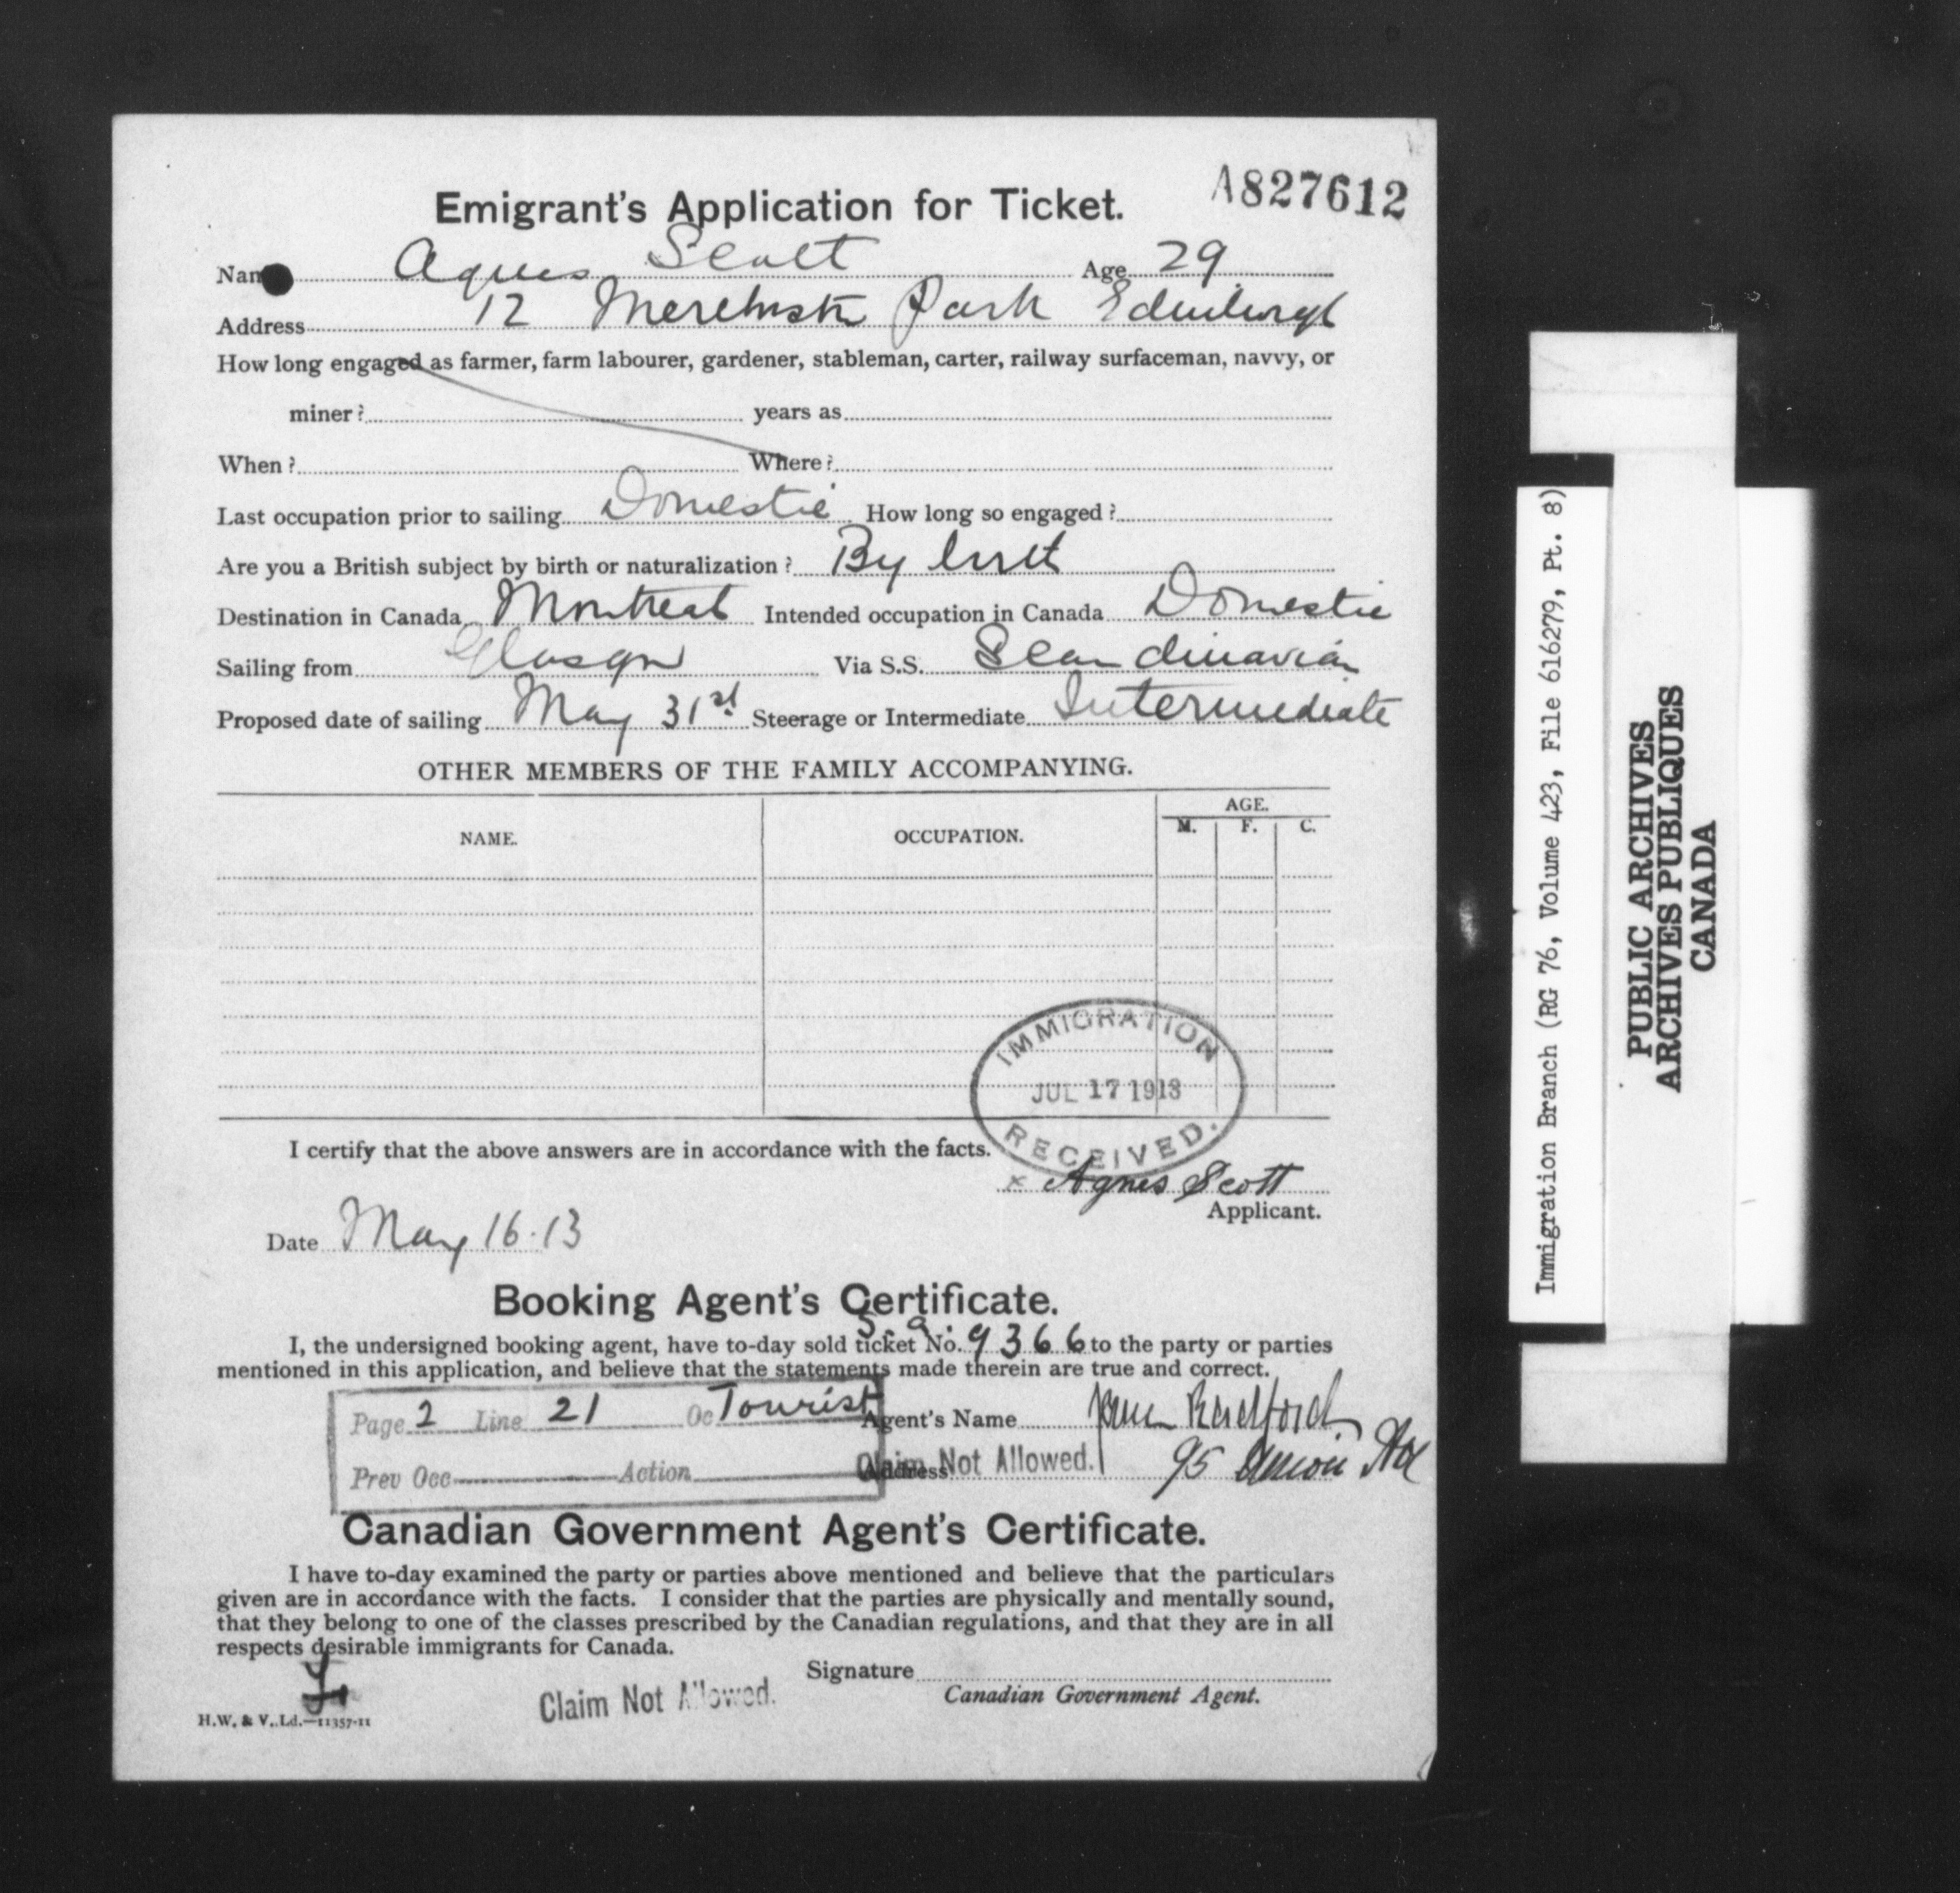 A827612
Emigrant's Application for Ticket.
Name Agnes Scott Age 29
Address 12 Merchiston Park Edinburgh
How long engaged as farmer, farm labourer, gardener, stableman, carter, railway surfaceman, navvy, or
miner? years as
When? Where?
Last occupation prior to sailing Domestic How long so engaged?
Are you a British subject by birth or naturalization? By birth
Destination in Canada Montreal Intended occupation in Canada Domestic
Sailing from Glasgow Via S.S. Scandinavian
Proposed date of sailing May 31st Steerage or Intermediate Intermediate
OTHER MEMBERS OF THE FAMILY ACCOMPANYING.
NAME. OCCUPATION. AGE.
M. F. C.
IMMIGRATION
JUL 17 1913
RECEIVED.
I certify that the above answers are in accordance with the facts.
x Agnes Scott
Applicant.
Date May 16.13
Booking Agent's Certificate.
I, the undersigned booking agent, have to-day sold ticket No. 9366 to the party or parties
mentioned in this application, and believe that the statements made therein are true and correct.
Page 2 Line 21 Oc Tourist
Agent's Name Radford
Prev Occ Action
Claim Not Allowed.
Address 95
Canadian Government Agent's Certificate.
I have to-day examined the party or parties above mentioned and believe that the particulars
given are in accordance with the facts. I consider that the parties are physically and mentally sound,
that they belong to one of the classes prescribed by the Canadian regulations, and that they are in all
respects desirable immigrants for Canada.
Signature
Canadian Government Agent.
Claim Not Allowed.
H.W. & V. Ld.—11357-11
Immigration Branch (RG 76, Volume 423, File 616279, Pt. 8)
PUBLIC ARCHIVES
ARCHIVES PUBLIQUES
CANADA